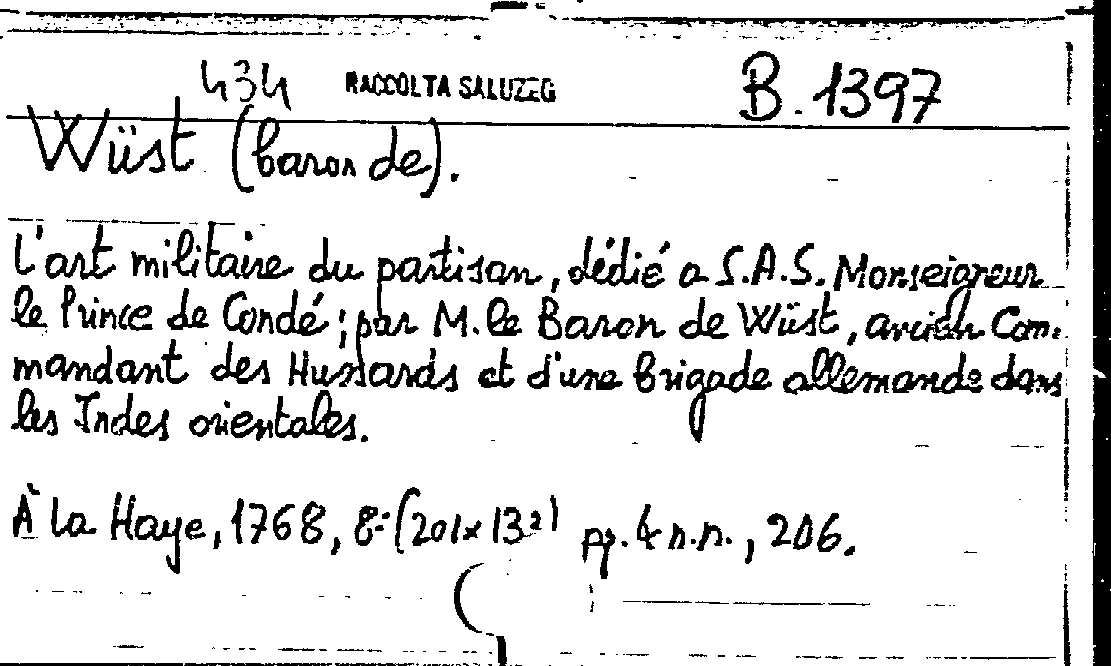 434 RACCOLTA SALUZZO B. 1397
Wüst (baron de).
L'art militaire du partisan, dédié a S.A.S. Monseigneur
le Prince de Condé; par M. le Baron de Wüst, ancien Com-
mandant des Hussards et d'une brigade allemande dans
les Indes orientales.
À la Haye, 1768, 8º (201x132) pp. 4 n.n., 206.